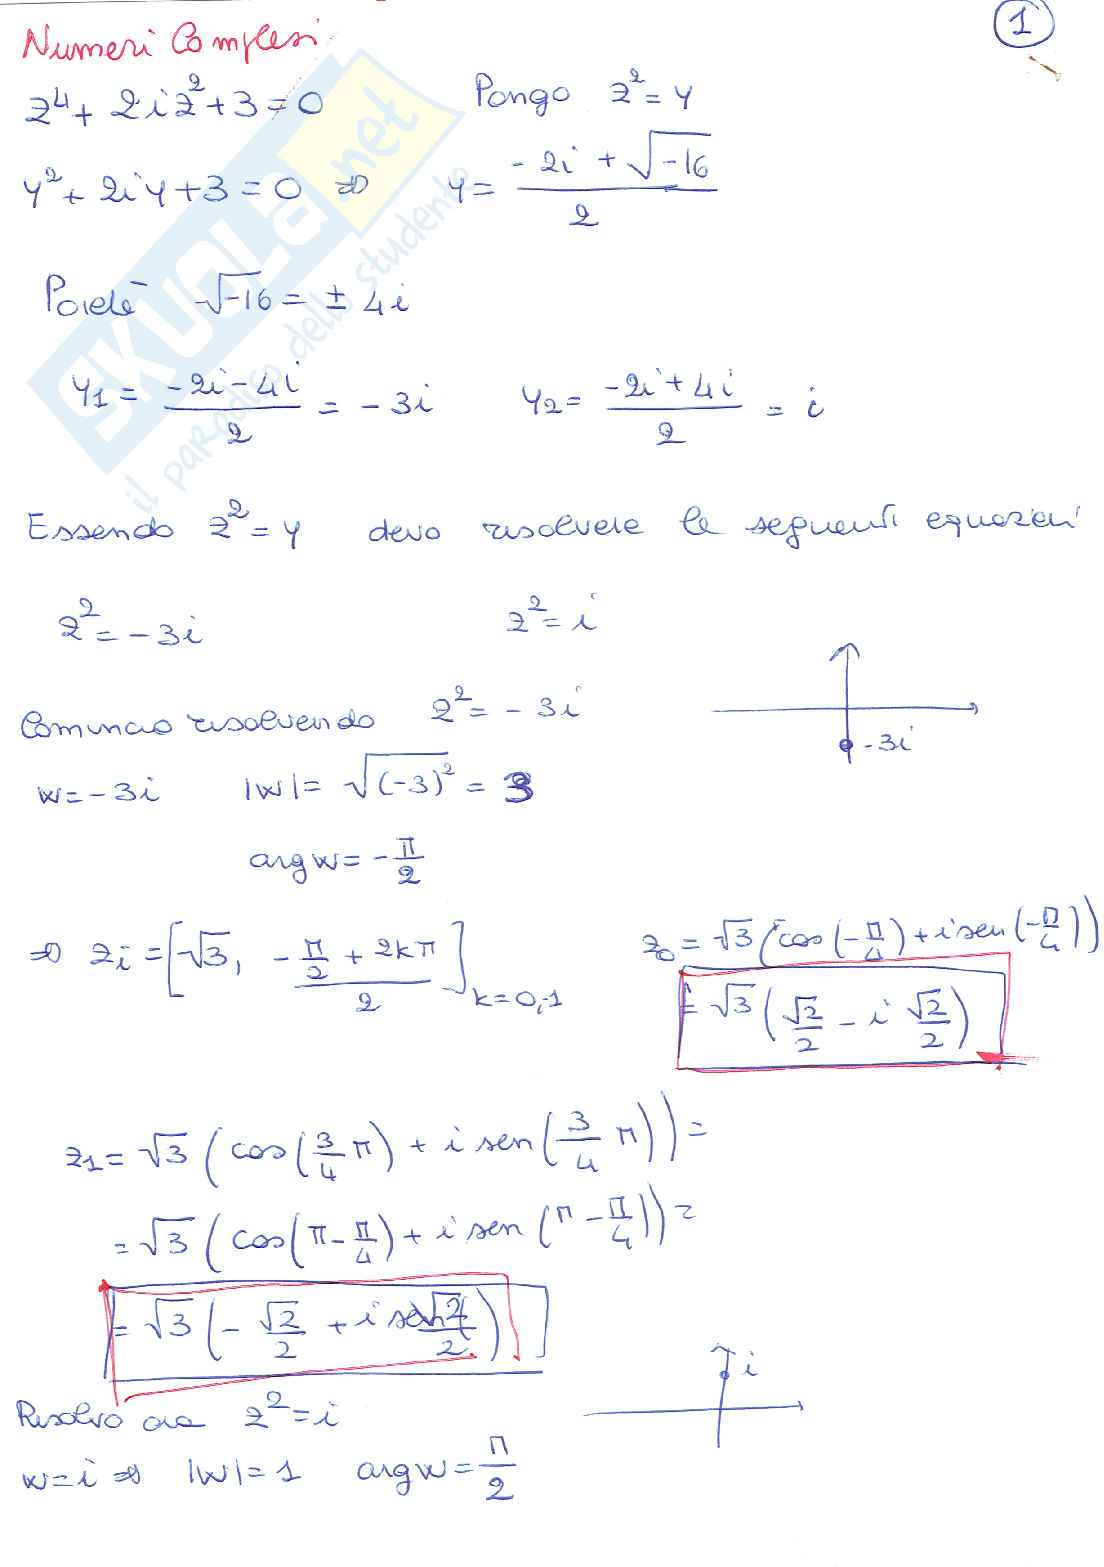 1
Numeri Complessi
z⁴ + 2iz² + 3 = 0 Pongo z² = y
y² + 2iy + 3 = 0 ⇒ y = (-2i + √-16)/2
Poiché √-16 = ± 4i
y₁ = (-2i - 4i)/2 = -3i y₂ = (-2i + 4i)/2 = i
Essendo z² = y devo risolvere le seguenti equazioni
z² = -3i z² = i
Comincio risolvendo z² = -3i
-3i
w = -3i |w| = √(-3)² = 3
arg w = -π/2
⇒ zi = [√3, (-π/2 + 2kπ)/2] k=0,1 z₀ = √3 (cos(-π/4) + i sen(-π/4))
= √3 (√2/2 - i √2/2)
z₁ = √3 (cos(3/4 π) + i sen(3/4 π)) =
= √3 (cos(π - π/4) + i sen(π - π/4)) =
= √3 (-√2/2 + i √2/2)
i
Risolvo ora z² = i
w = i ⇒ |w| = 1 arg w = π/2
SKUOLa.net
il paradiso dello studente